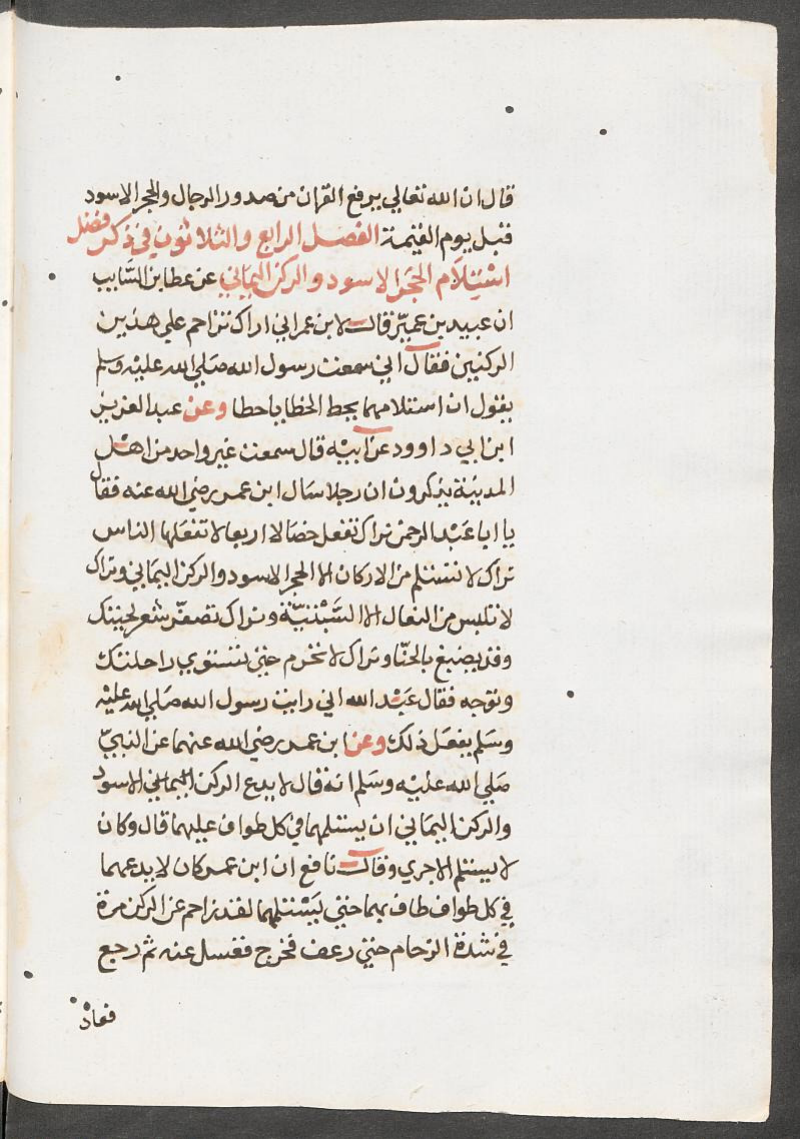 قال ان الله تعالي يرفع القران من صدور الرجال والحجر الاسود
قبل يوم القيمة الفصل الرابع والثلاثون في ذكر فضل
استلام الحجر الاسود والركن اليماني عن عطا بن السايب
ان عبيد بن عمير قال لابن عمر اني اراك تزاحم علي هذين
الركنين فقال اني سمعت رسول الله صلي الله عليه وسلم
يقول ان استلامهما يحط الخطايا حطا وعن عبد العزيز
ابن ابي داوود عن ابيه قال سمعت غير واحد من اهل
المدينة يذكرون ان رجلا سال ابن عمر رضي الله عنه فقال
يا ابا عبد الرحمن نراك تفعل خصالا اربعا لا تفعلها الناس
نراك لا تستلم من الاركان الا الحجر الاسود والركن اليماني ونراك
لا تلبس من النعال الا السبتية ونراك تصفر شعر لحيتك
وقد يصبغ بالحنا ونراك لا تحرم حتي تستوي راحلتك
وتوجه فقال عبد الله اني رايت رسول الله صلي الله عليه
وسلم يفعل ذلك وعن ابن عمر رضي الله عنهما عن النبي
صلي الله عليه وسلم انه قال لا يدع الركن اليماني الاسود
والركن اليماني ان يستلمهما في كل طواف عليهما قال وكان
لا يستلم الاخري وقال نافع ان ابن عمر كان لا يدعهما
في كل طواف طاف بهما حتي يستلمهما لقد زاحم عن الركن مرة
في شدة الزحام حتي رعف فخرج فغسل عنه ثم رجع
فعاد